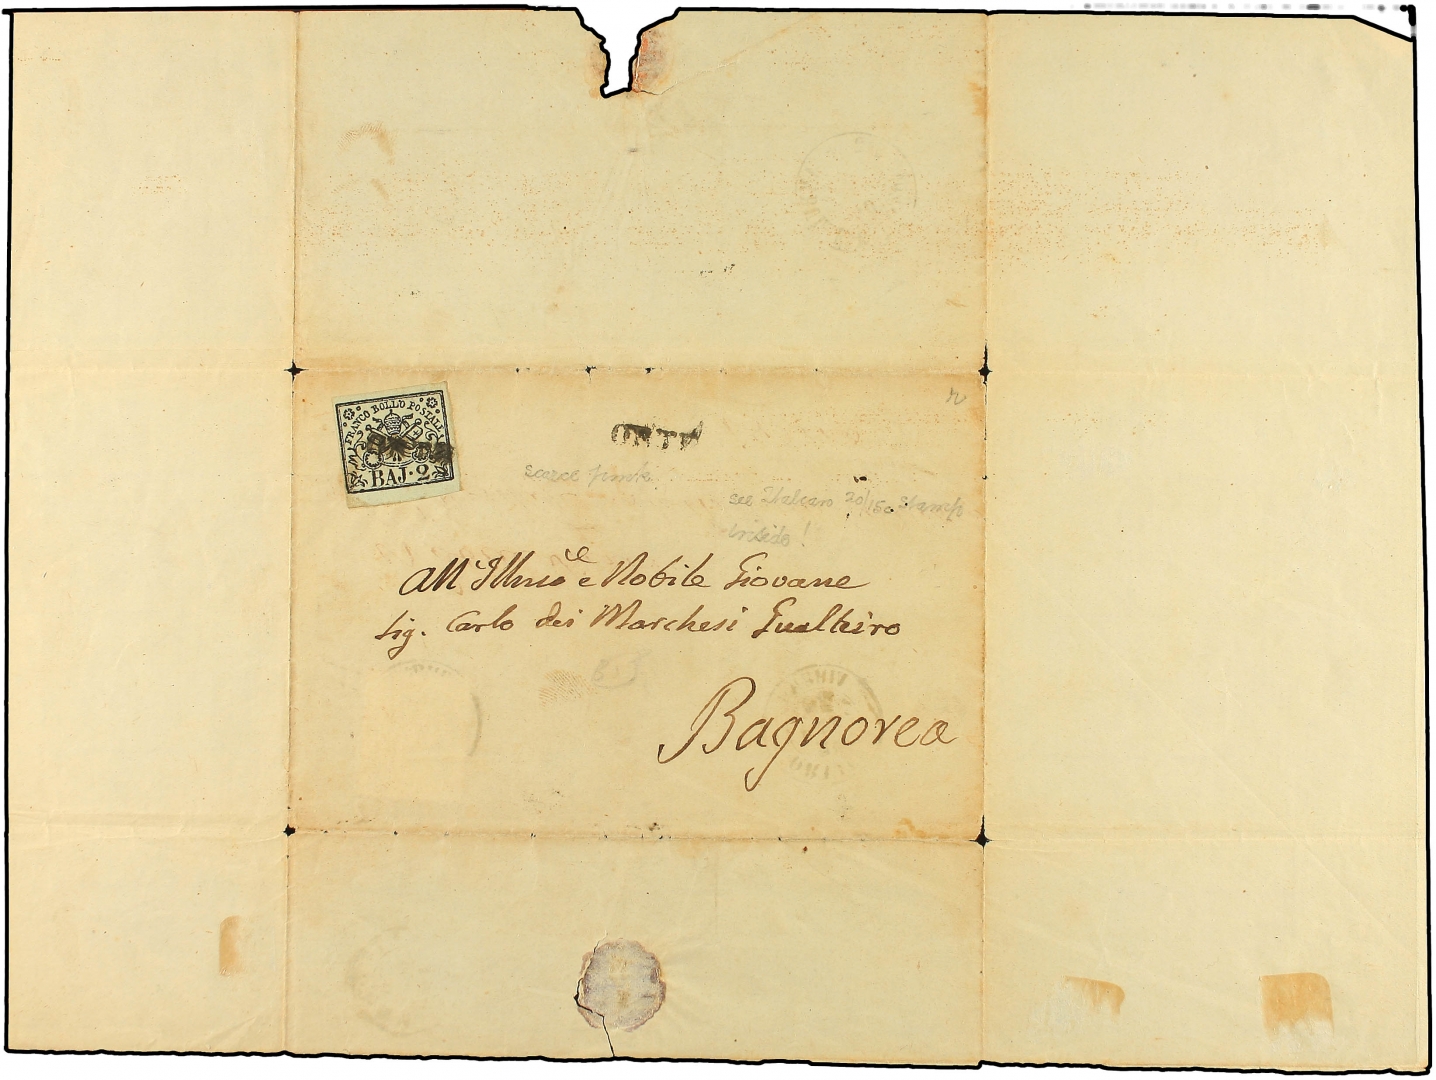 FRANCO BOLLO POSTALE
BAJ·2
ONTE
scarce
see Italian 20/15c stamp
inside!
All' Illmo e Nobile Giovane
Sig. Carlo dei Marchesi Gualteiro
Bagnorea